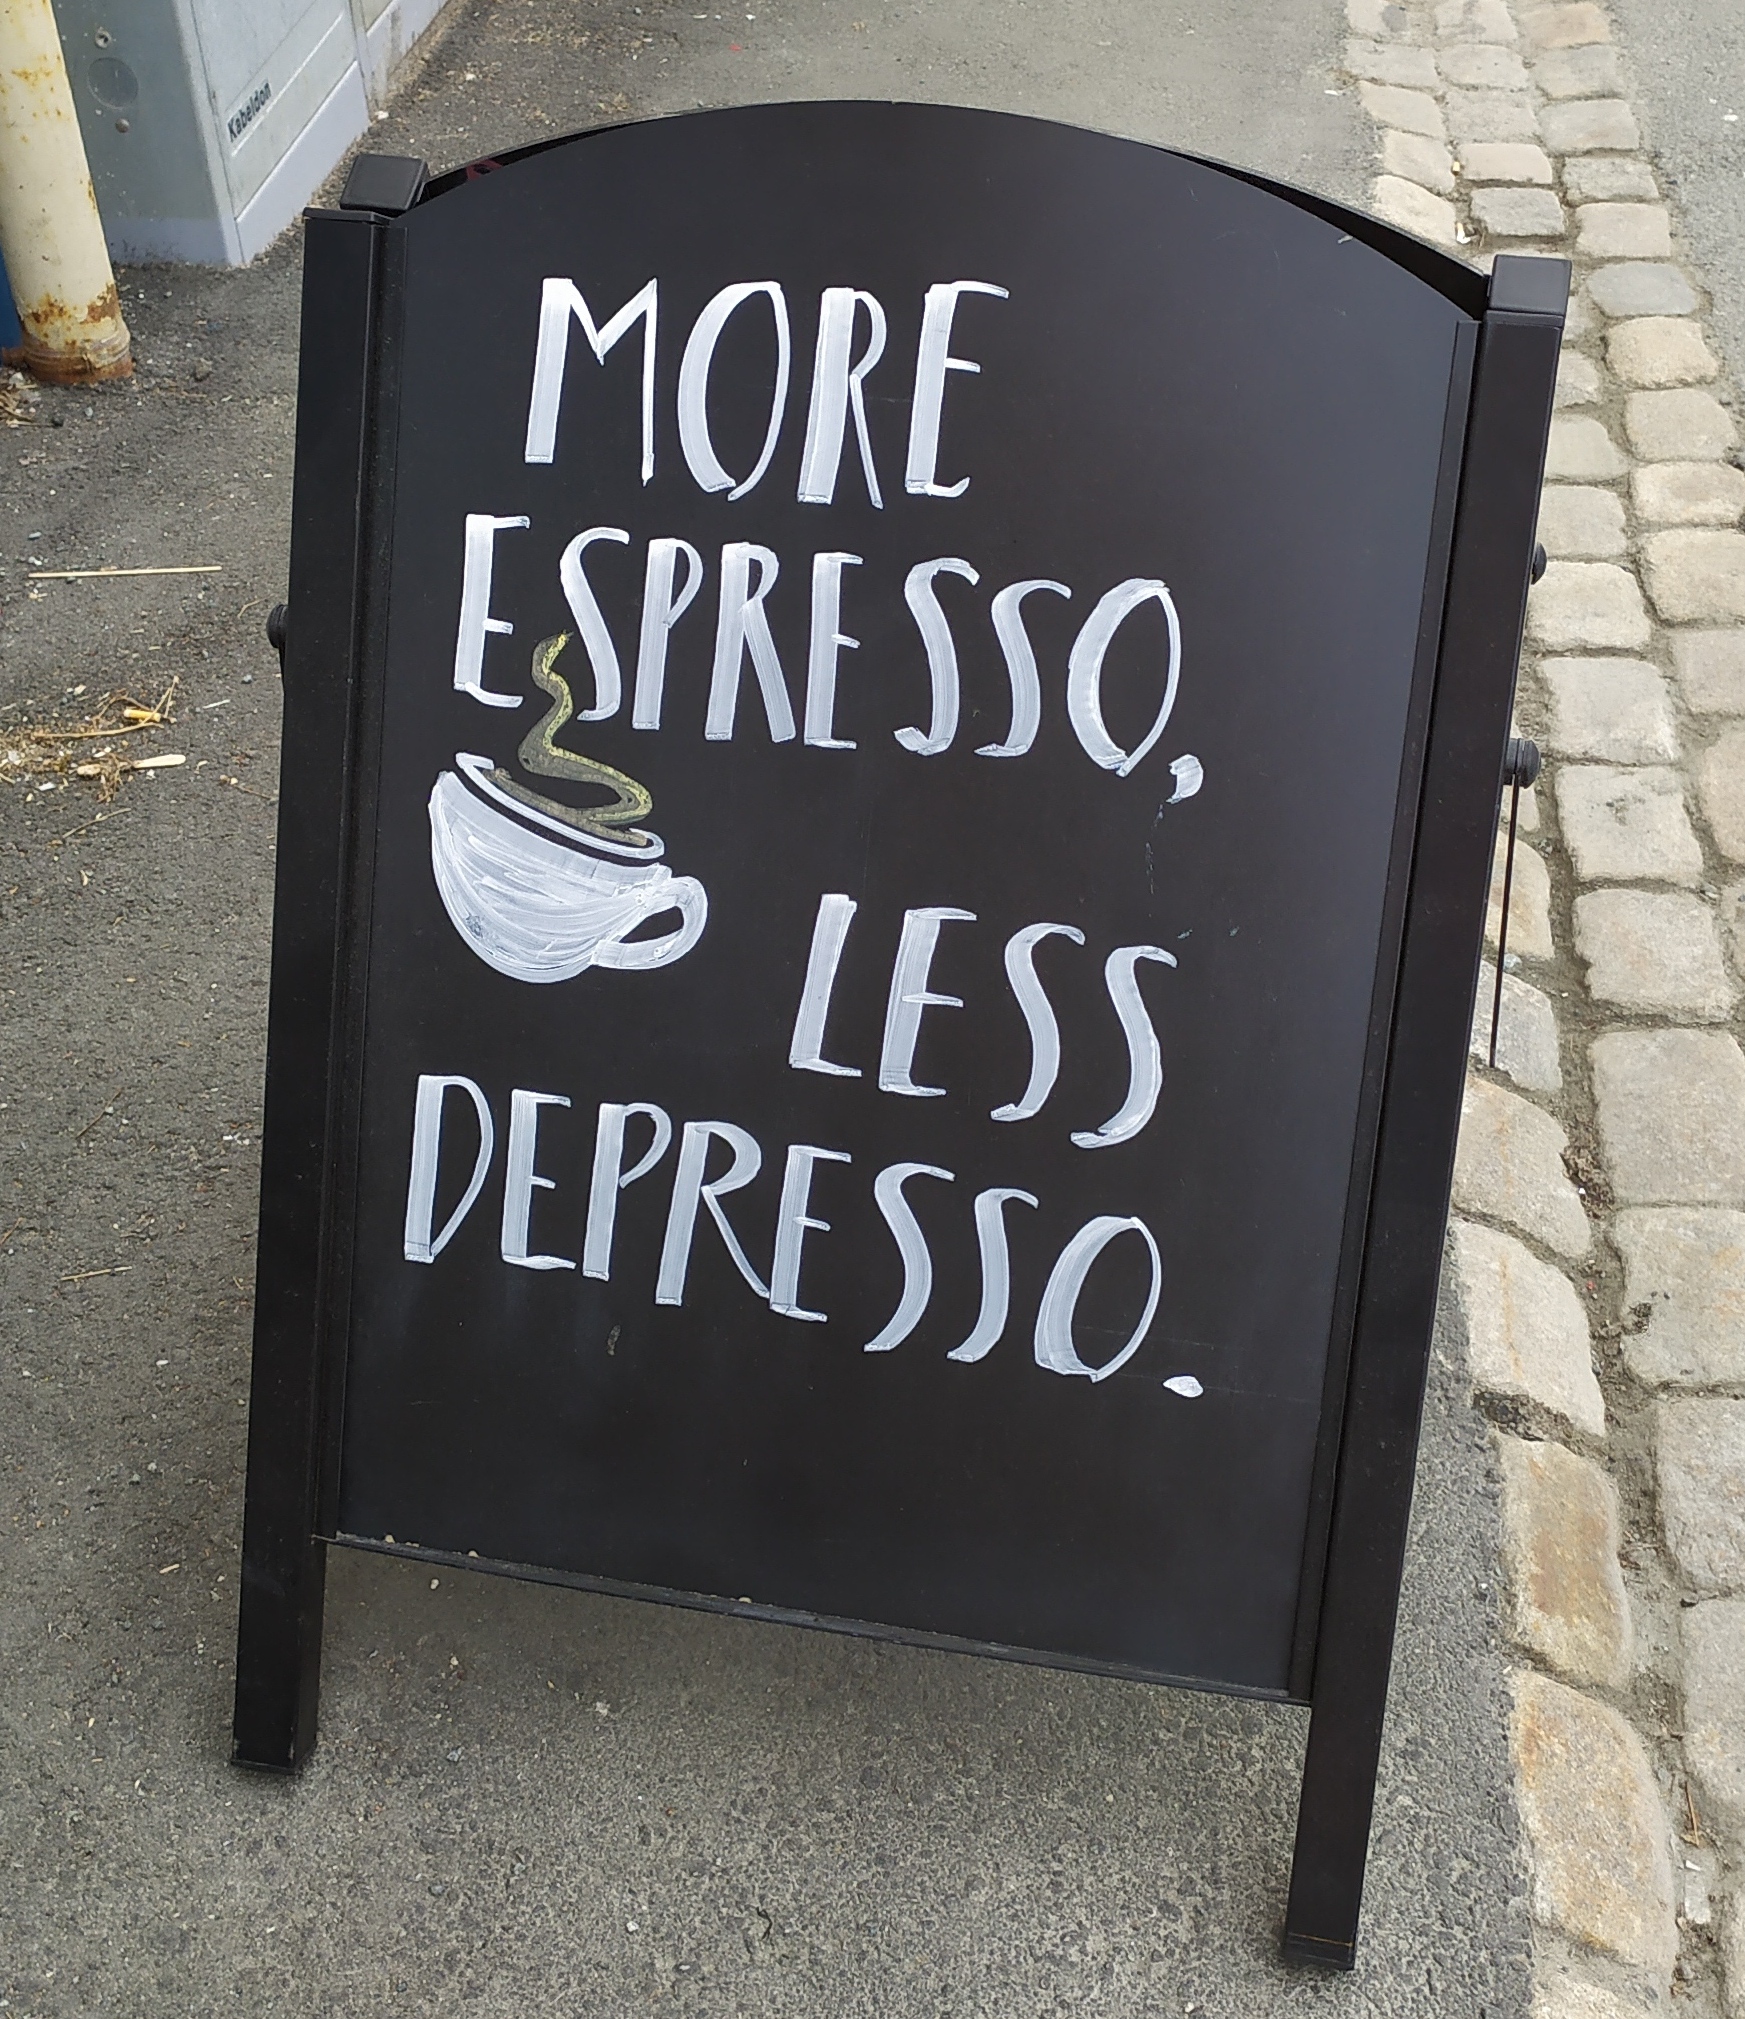 Kabeldon
MORE
ESPRESSO,
LESS
DEPRESSO.